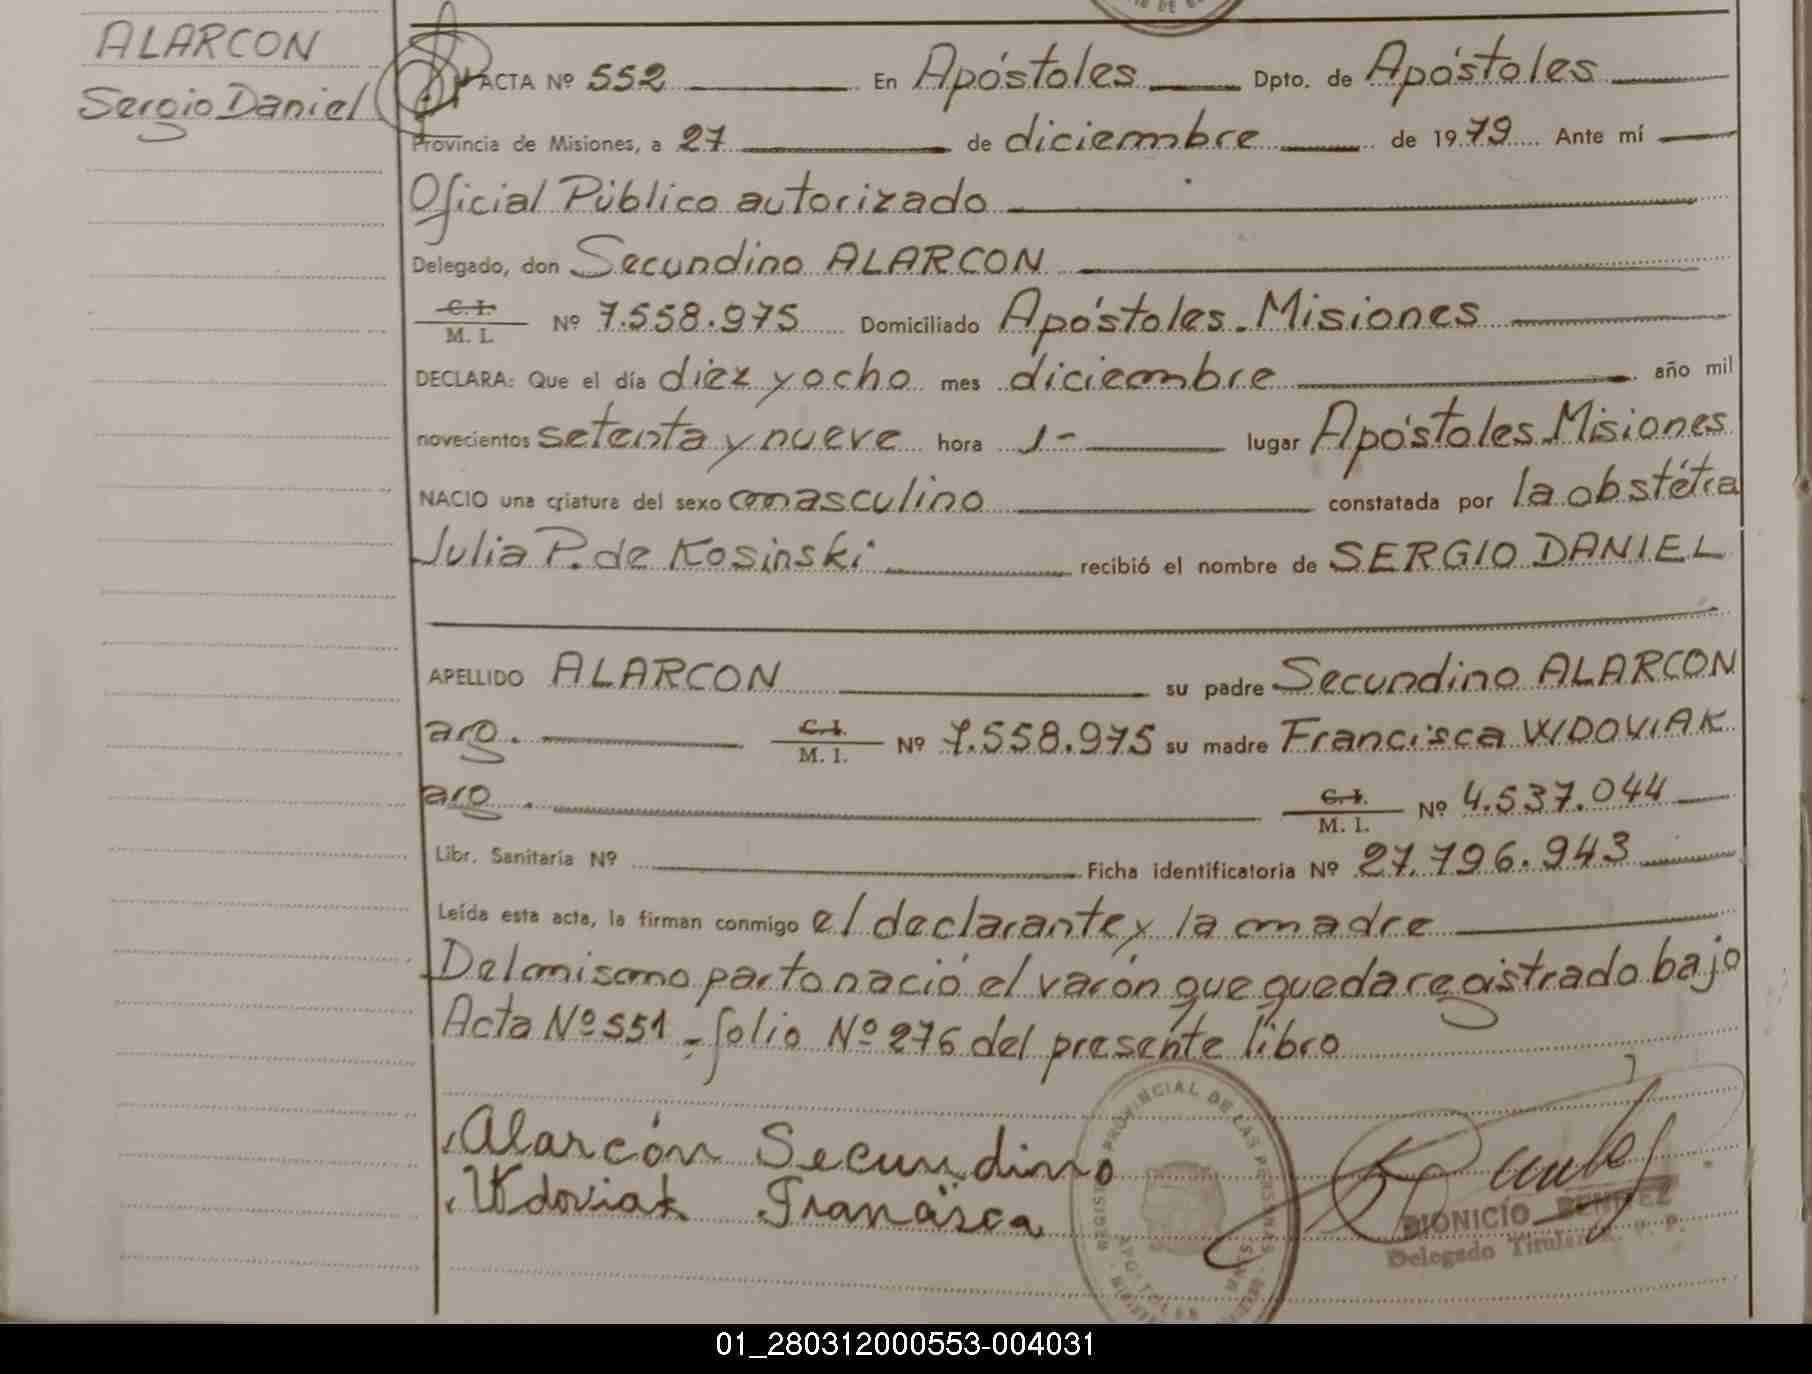 ALARCON
Sergio Daniel
ACTA Nº 552 En Apóstoles Dpto. de Apóstoles
Provincia de Misiones, a 27 de diciembre de 1979 Ante mí
Oficial Público autorizado
Delegado, don Secundino ALARCON
C. I.
M. I. Nº 7.558.975 Domiciliado Apóstoles. Misiones
DECLARA: Que el día diez y ocho mes diciembre año mil
novecientos setenta y nueve hora 1- lugar Apóstoles Misiones
NACIO una criatura del sexo masculino constatada por la obstétra
Julia P. de Kosinski recibió el nombre de SERGIO DANIEL
APELLIDO ALARCON su padre Secundino ALARCON
arg. C. I. M. I. Nº 7.558.975 su madre Francisca WDOVIAK
arg. C. I. M. I. Nº 4.537.044
Libr. Sanitaria Nº Ficha identificatoria Nº 27.796.943
Leída esta acta, la firman conmigo el declarante y la madre
Del mismo parto nació el varón que queda registrado bajo
Acta Nº 551 - folio Nº 276 del presente libro
Alarcón Secundino
Wdoviak Francisca
PROVINCIAL DE LAS PERSONAS
APOSTOLES
DIONICIO BENITEZ
Delegado Titular R. P. P.
01_280312000553-004031